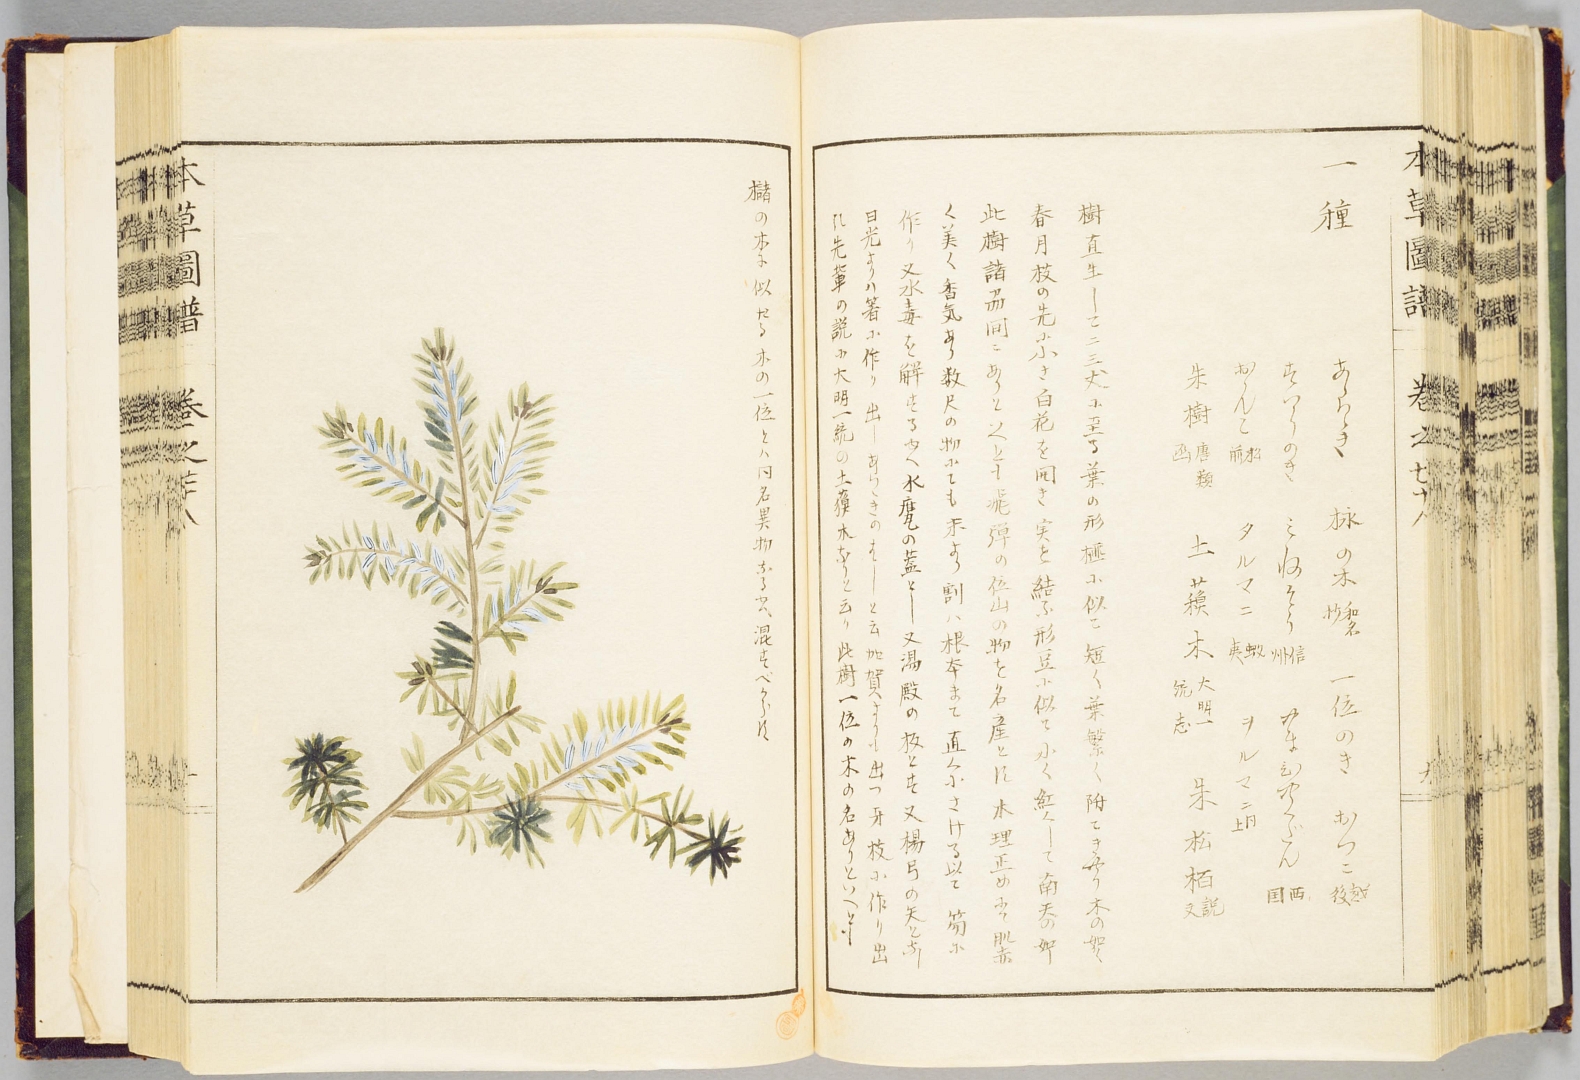 本草圖譜 巻之七十八
一種
あらゝき
一位のき
朱樹
土蘋木 大明一統志
タルマニ 蝦夷
ヲルマニ 同上
信州
西国
越後
朱松栢 又説
樹直生して二三丈に至る葉の形榧に似て短く葉繁く附てきやら木の如く
春月枝の先に小さき白花を開き実を結ふ形豆に似て小く紅くして南天の如
此樹諸州同にありといへとも飛弾の位山の物を名産とす木理正めにて肌赤
く美く香気あり数尺の物にても末より割ハ根本まて直くにさける以て笏に
作り又水毒を解するゆへ水甕の蓋とし又湯殿の板とす又楊弓の矢となし
日光よりハ箸に作り出しあらゝきのはしと云加賀よりも出つ牙枝に作り出
す先輩の説に大明一統の土蘋木なりと云り此樹一位の木の名ありといへとも
櫧の木に似たる木の一位とハ同名異物なるゆへ混すべからす
本草圖譜 巻之